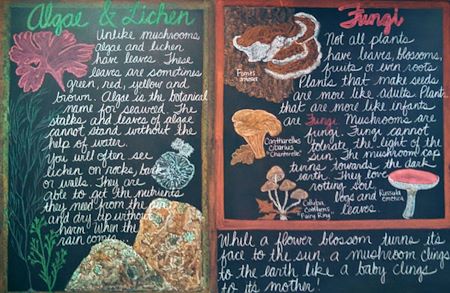 Algae & Lichen
Unlike mushrooms,
algae and lichen
have leaves. These
leaves are sometimes
green, red, yellow and
brown. Algae is the botanical
name for seaweed. The
stalks and leaves of algae
cannot stand without the
help of water.
You will often see
lichen on rocks, bark
or walls. They are
able to get the nutrients
they need from the air
and dry up without
harm. When the
rain comes
Fungi
Not all plants
have leaves, blossoms,
fruits or even roots.
Plants that make seeds
are more like adults. Plants
that are more like infants
are Fungi. Mushrooms are
fungi. Fungi cannot
tolerate the light of the
sun. The mushroom cap
turns towards the dark
earth. They love
rotting soil,
logs and
leaves.
Fomes
Cantharellus
Cibarius
"Chanterelle"
Collybia
"Fairy Ring"
Russula
emetica
While a flower blossom turns it's
face to the sun, a mushroom clings
to the earth like a baby clings
to it's mother!